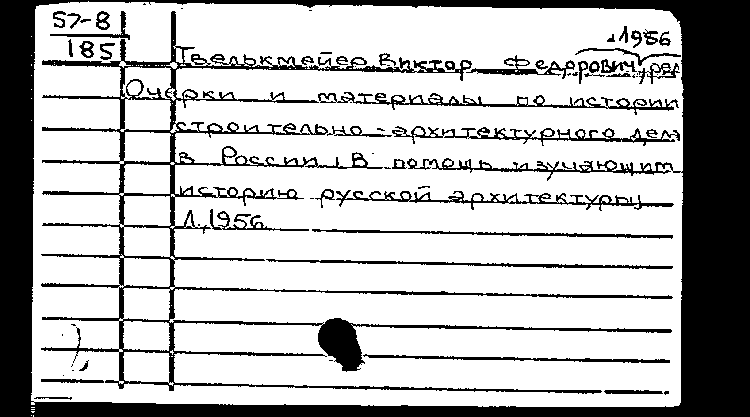 57-8
185
1956
Твелькмейер Виктор Федорович, ред
Очерки и материалы по истории
строительно-архитектурного дела
в России, В помощь изучающим
историю русской архитектуры
Л., 1956